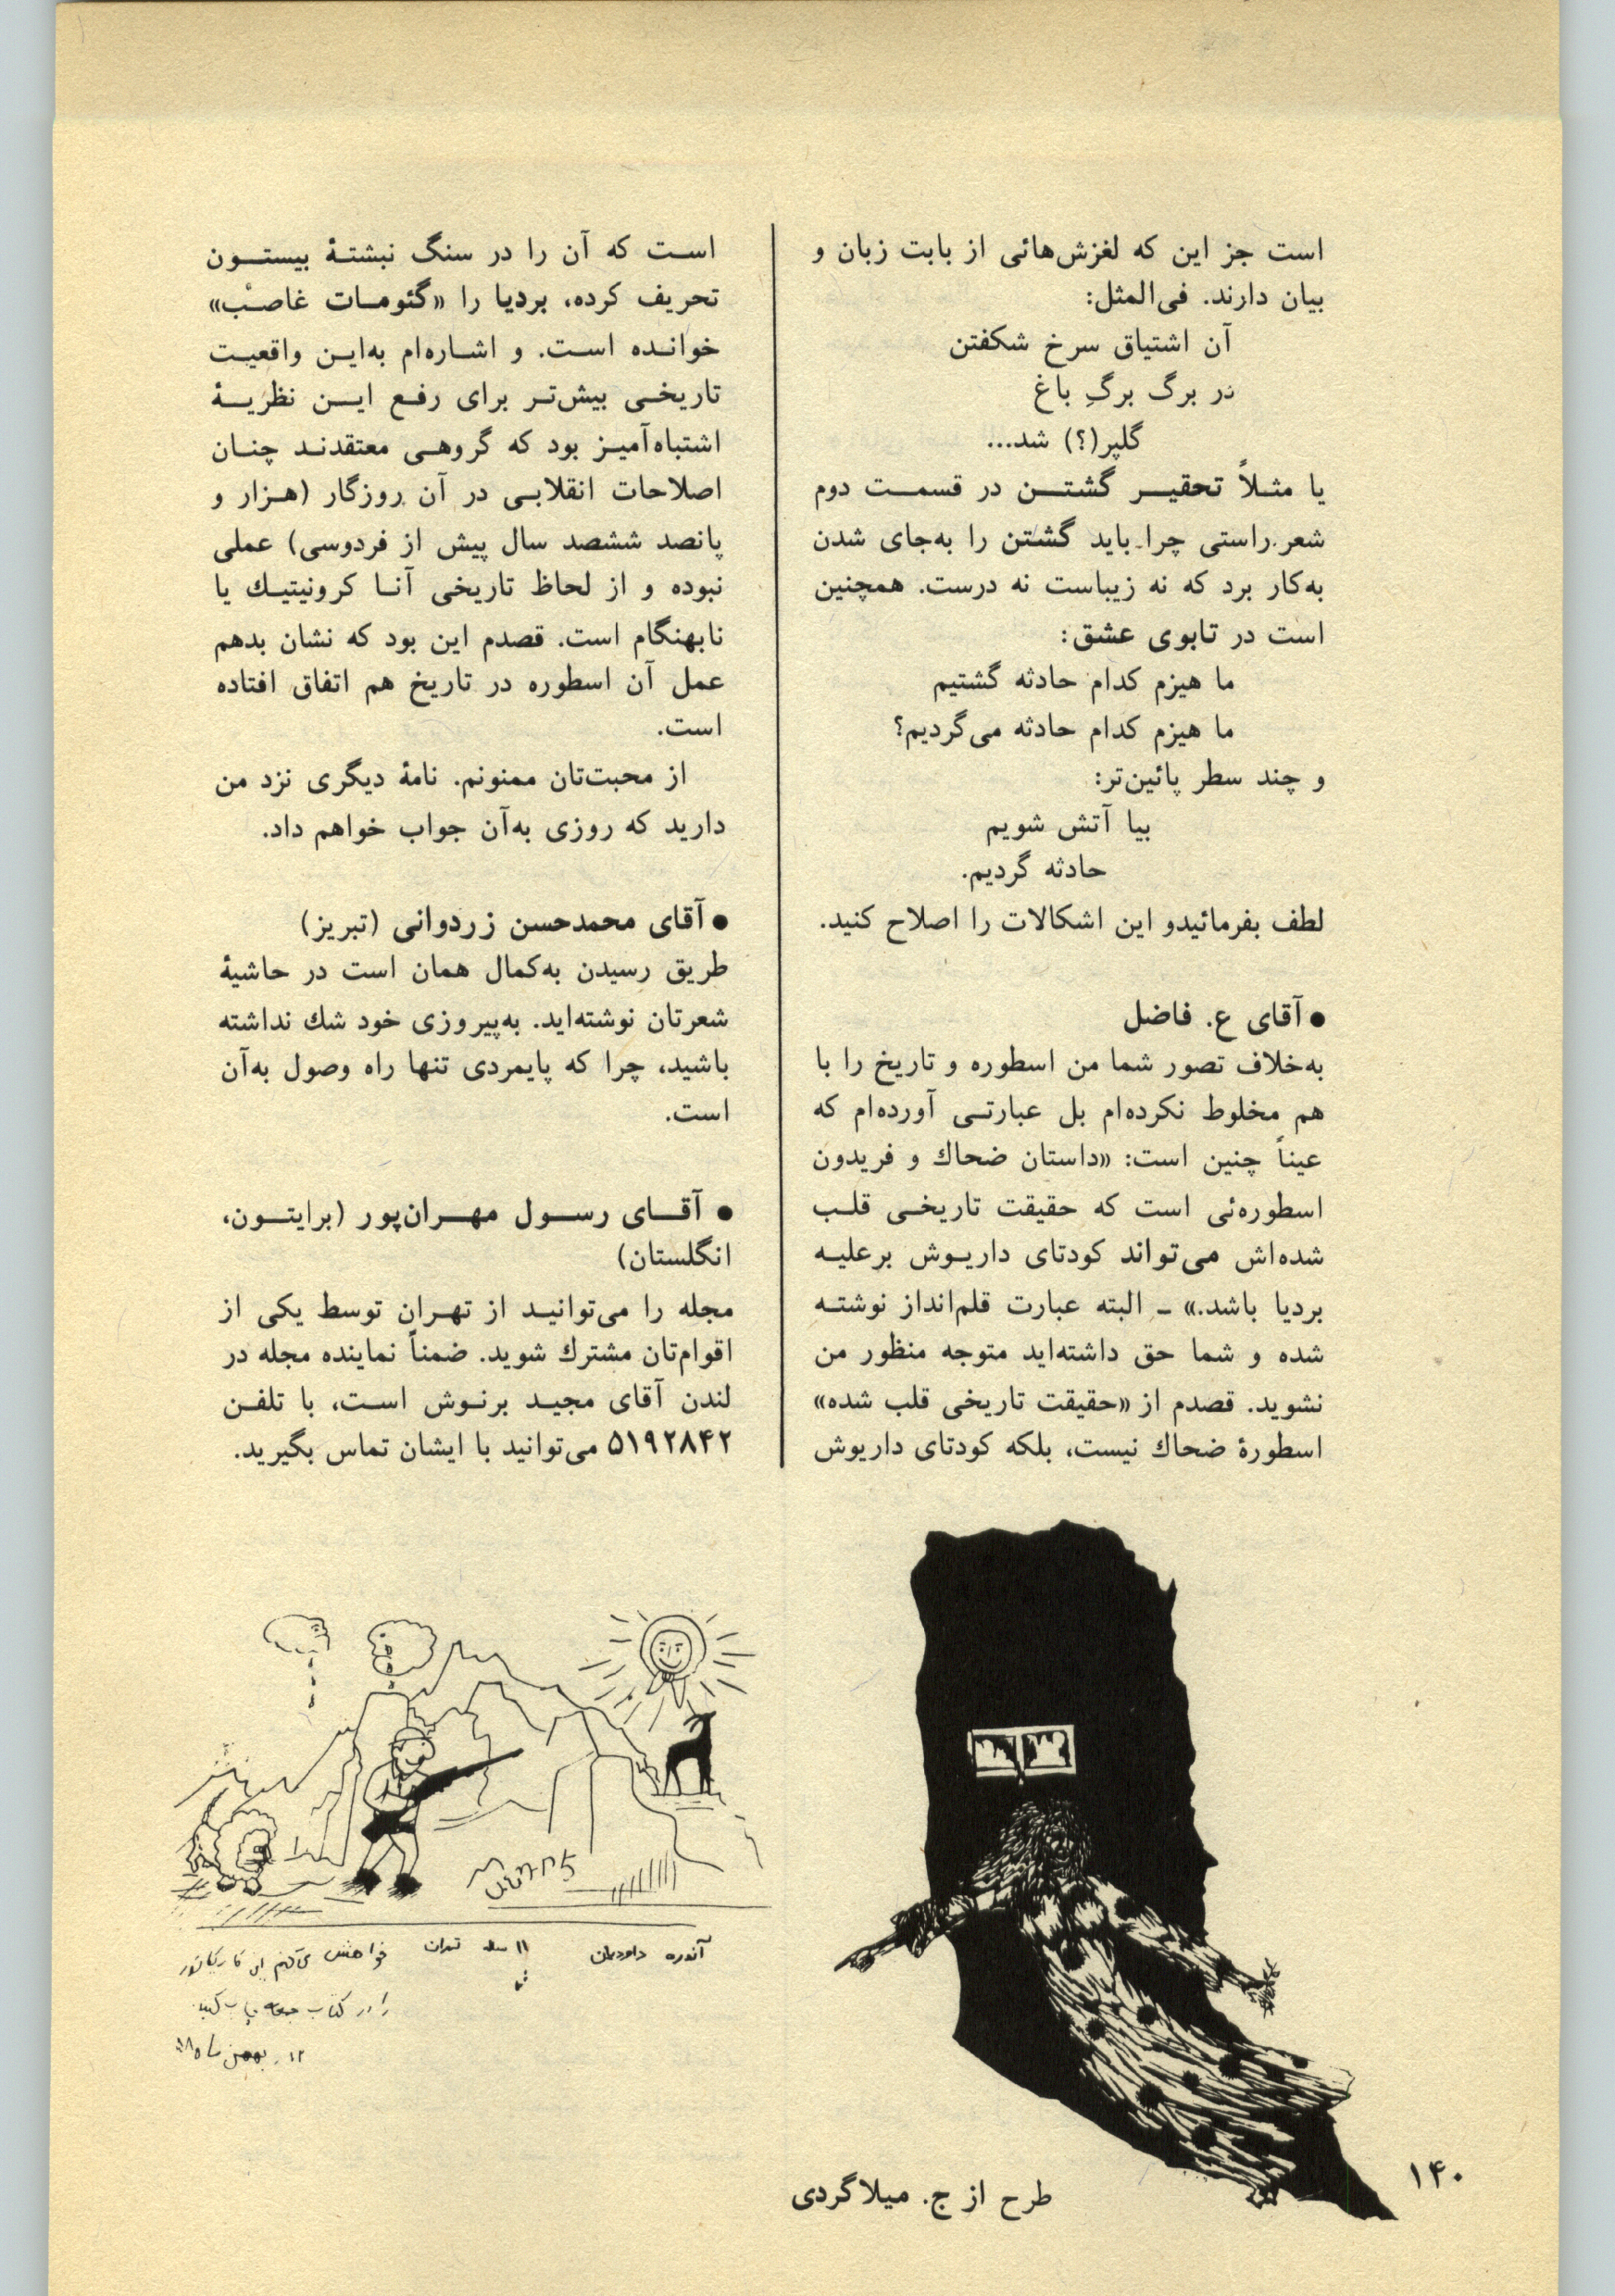 است جز این که لغزش‌هائی از بابت زبان و
بیان دارند. فی‌المثل:
آن اشتیاق سرخ شکفتن
در برگ برگِ باغ
گلپر(؟) شد...
یا مثلاً تحقیر گشتن در قسمت دوم
شعر. راستی چرا باید گشتن را به‌جای شدن
به‌کار برد که نه زیباست نه درست. همچنین
است در تابوی عشق:
ما هیزم کدام حادثه گشتیم
ما هیزم کدام حادثه می‌گردیم؟
و چند سطر پائین‌تر:
بیا آتش شویم
حادثه گردیم.
لطف بفرمائیدو این اشکالات را اصلاح کنید.
● آقای ع. فاضل
به‌خلاف تصور شما من اسطوره و تاریخ را با
هم مخلوط نکرده‌ام بل عبارتی آورده‌ام که
عیناً چنین است: «داستان ضحاك و فریدون
اسطوره‌ئی است که حقیقت تاریخی قلب
شده‌اش می‌تواند کودتای داریوش برعلیه
بردیا باشد.» ـ البته عبارت قلم‌انداز نوشته
شده و شما حق داشته‌اید متوجه منظور من
نشوید. قصدم از «حقیقت تاریخی قلب شده»
اسطورهٔ ضحاك نیست، بلکه کودتای داریوش
است که آن را در سنگ نبشتهٔ بیستون
تحریف کرده، بردیا را «گئومات غاصب»
خوانده است. و اشاره‌ام به‌این واقعیت
تاریخی بیش‌تر برای رفع این نظریهٔ
اشتباه‌آمیز بود که گروهی معتقدند چنان
اصلاحات انقلابی در آن روزگار (هزار و
پانصد ششصد سال پیش از فردوسی) عملی
نبوده و از لحاظ تاریخی آنا کرونیتیك یا
نابهنگام است. قصدم این بود که نشان بدهم
عمل آن اسطوره در تاریخ هم اتفاق افتاده
است.
از محبت‌تان ممنونم. نامهٔ دیگری نزد من
دارید که روزی به‌آن جواب خواهم داد.
● آقای محمدحسن زردوانی (تبریز)
طریق رسیدن به‌کمال همان است در حاشیهٔ
شعرتان نوشته‌اید. به‌پیروزی خود شك نداشته
باشید، چرا که پایمردی تنها راه وصول به‌آن
است.
● آقای رسول مهران‌پور (برایتون،
انگلستان)
مجله را می‌توانید از تهران توسط یکی از
اقوام‌تان مشترك شوید. ضمناً نماینده مجله در
لندن آقای مجید برنوش است، با تلفن
۵۱۹۲۸۴۲ می‌توانید با ایشان تماس بگیرید.
آندره داودیان ۱۱ ساله تهران
خواهش می‌کنم این کاریکاتور
را در کتاب جمعه چاپ کنید.
۱۲ بهمن ماه ۵۸
طرح از ج. میلاگردی
۱۴۰